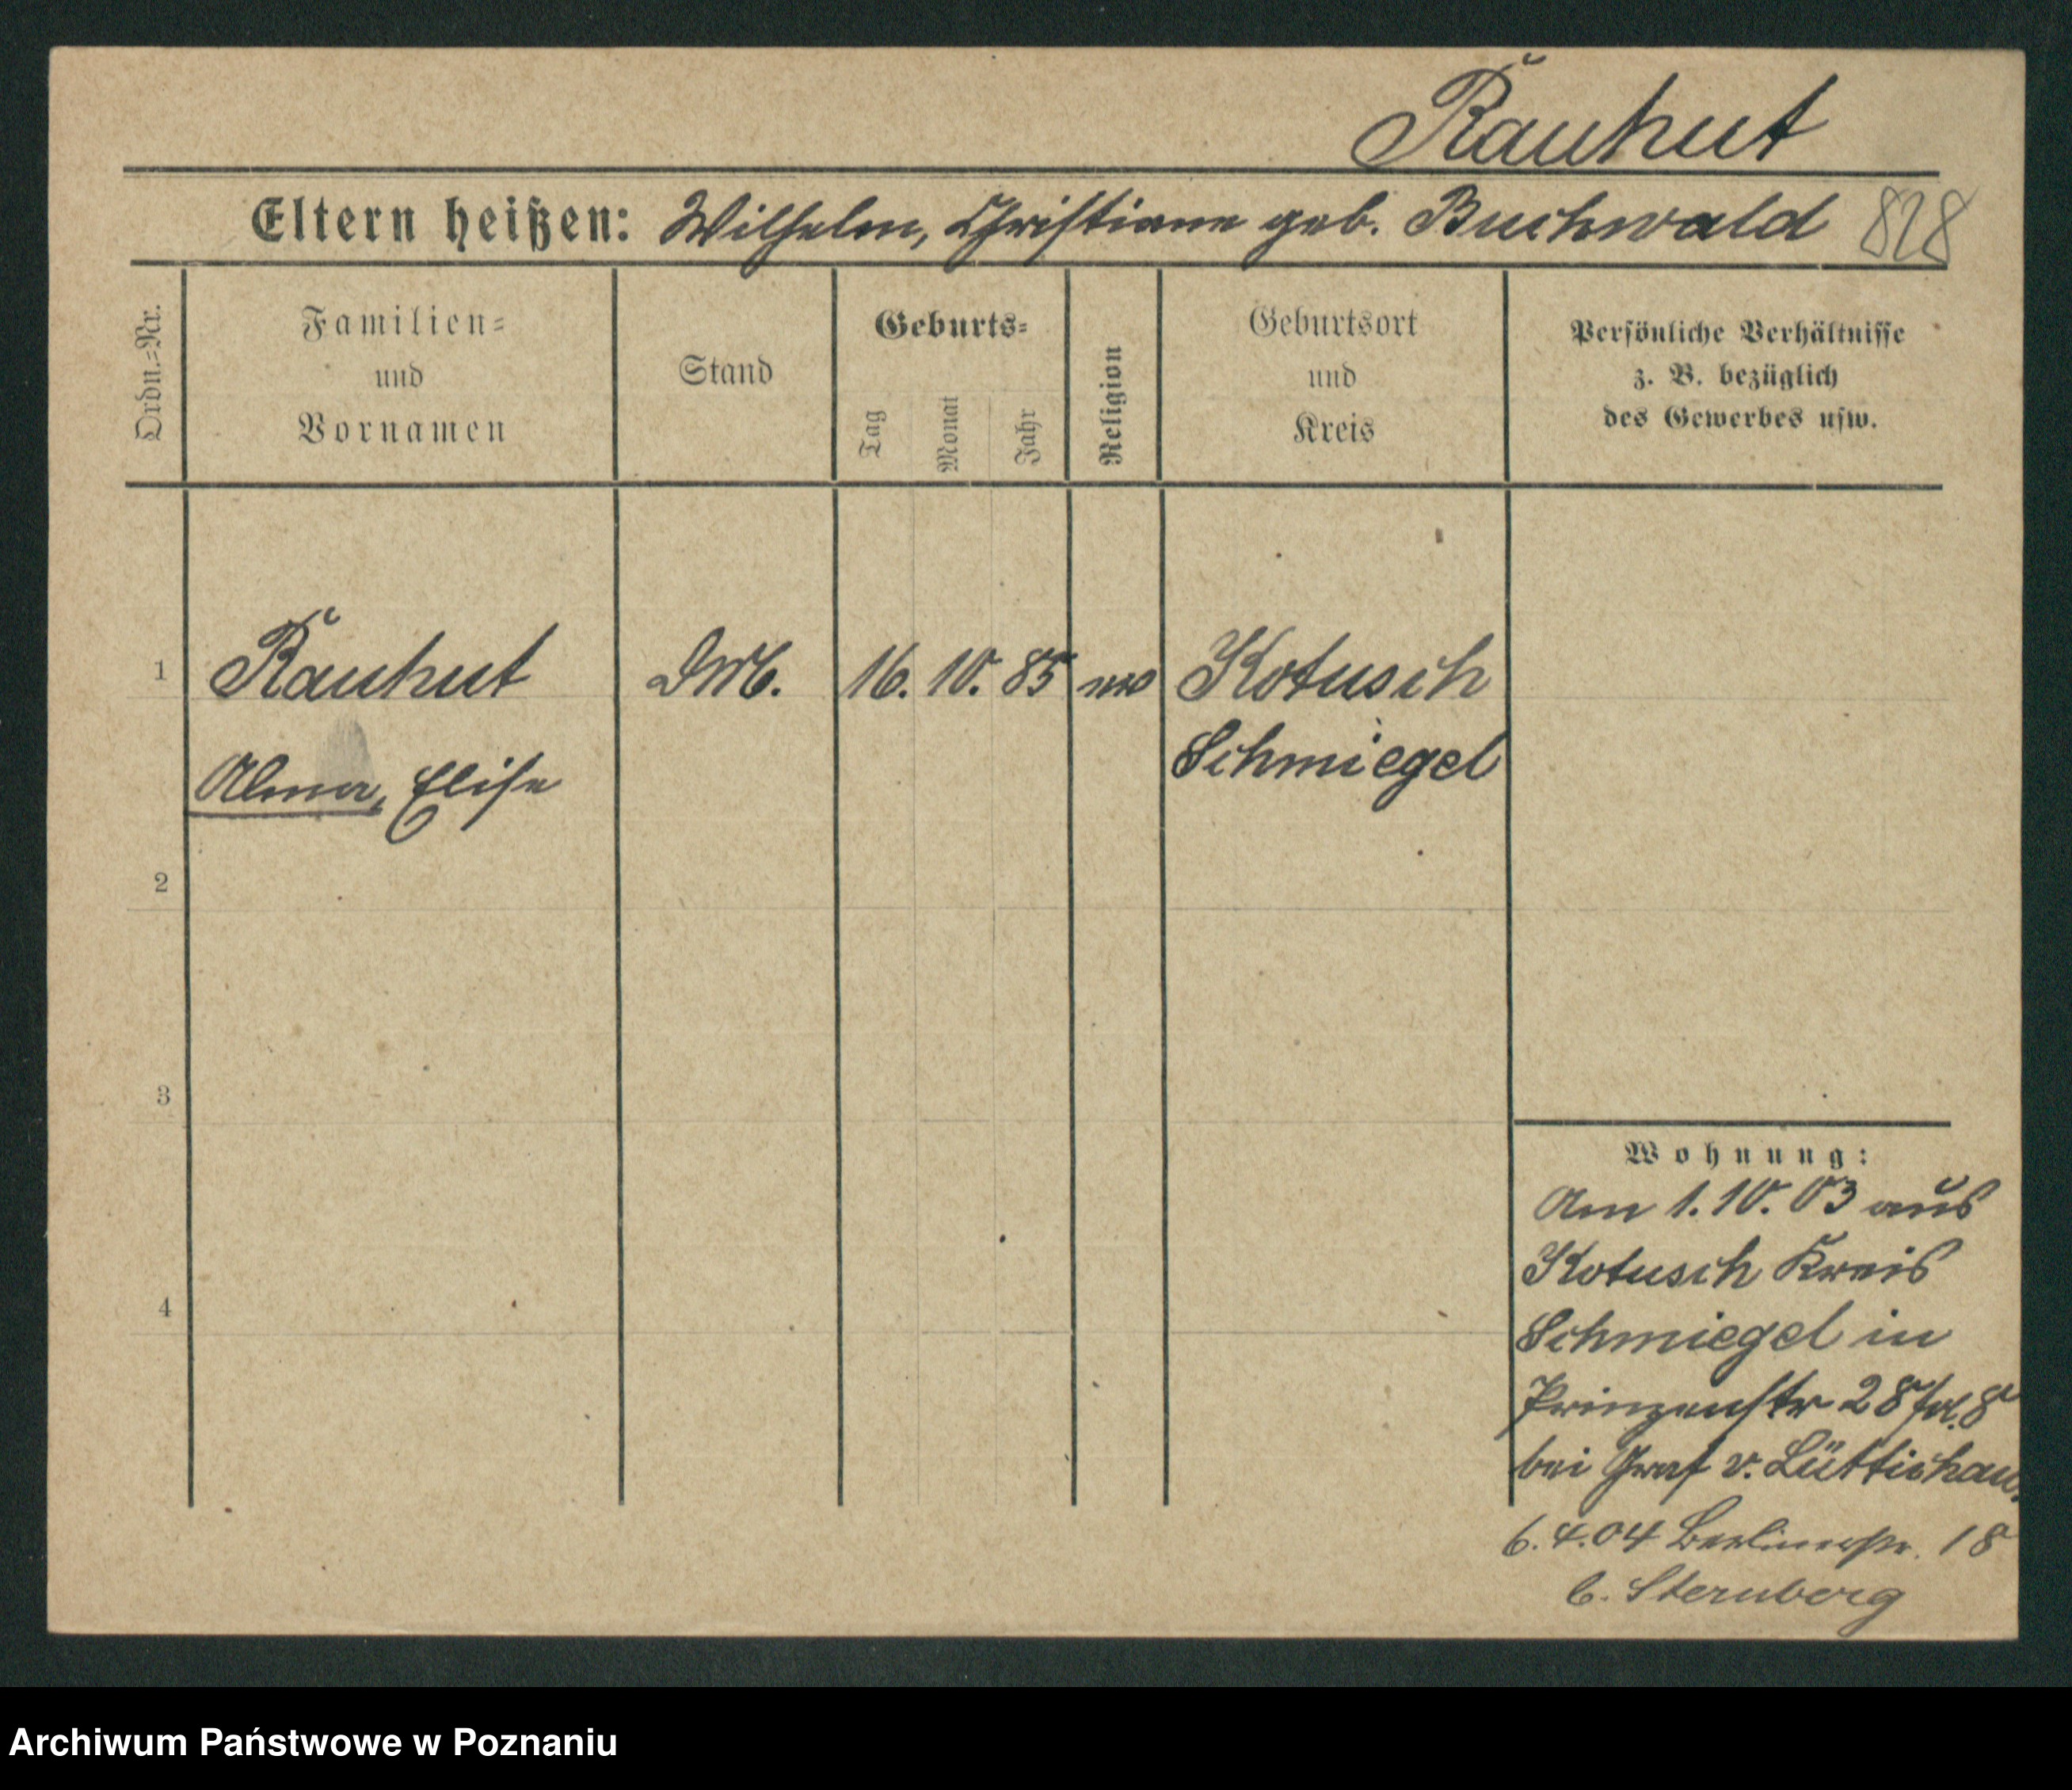 Rauhut
Eltern heißen: Wilhelm, Christiane geb. Buchwald 828
Ordn.=Nr.
Familien=
und
Vornamen
Stand
Geburts=
Tag
Monat
Jahr
Religion
Geburtsort
und
Kreis
Persönliche Verhältnisse
z. B. bezüglich
des Gewerbes usw.
1 Rauhut 16. 10. 85 Kotusch
Schmiegel
Alma, Elise
2
3
4
Wohnung:
Am 1. 10. 03 aus
Kotusch Kreis
Schmiegel in
Prinzenstr 28
bei Graf v. Lüttichau.
6. 4. 04 Berlinerstr. 18
b. Sternberg
Archiwum Państwowe w Poznaniu